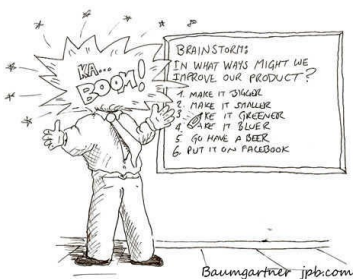 KA...
BOOM!
BRAINSTORM:
IN WHAT WAYS MIGHT WE
IMPROVE OUR PRODUCT?
1. MAKE IT BIGGER
2. MAKE IT SMALLER
3 KE IT GREENER
4 AKE IT BLUER
5 GO HAVE A BEER
6. PUT IT ON FACEBOOK
Baumgartner jpb.com